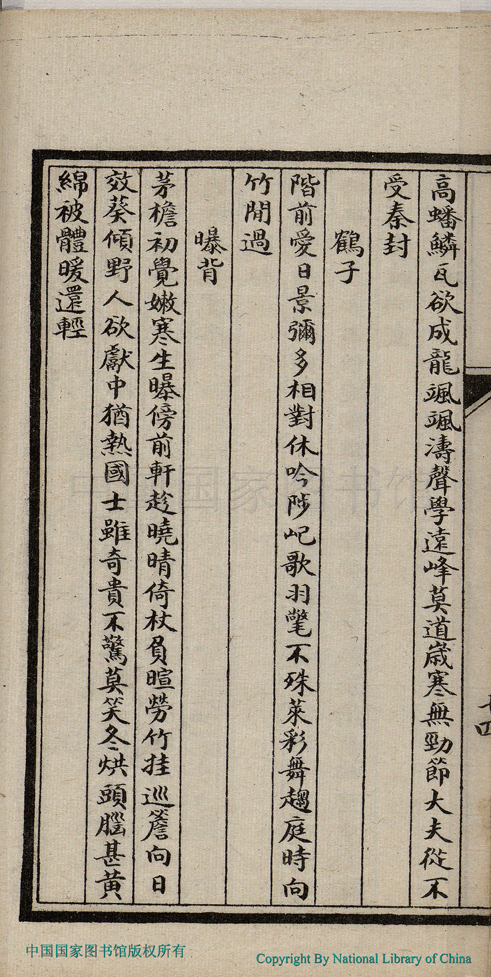 高蟠鱗瓦欲成龍颯颯濤聲學遠峰莫道歲寒無勁節大夫從不
受秦封
鶴子
階前愛日景彌多相對休吟陟屺歌羽氅不殊萊彩舞趨庭時向
竹間過
曝背
茅檐初覺嫩寒生曝傍前軒趁曉晴倚杖負暄勞竹挂巡簷向日
效葵傾野人欲獻中猶熱國士雖奇貴不驚莫笑冬烘頭腦甚黃
綿被體暖還輕
十四
中国国家图书馆
中国国家图书馆版权所有
Copyright By National Library of China